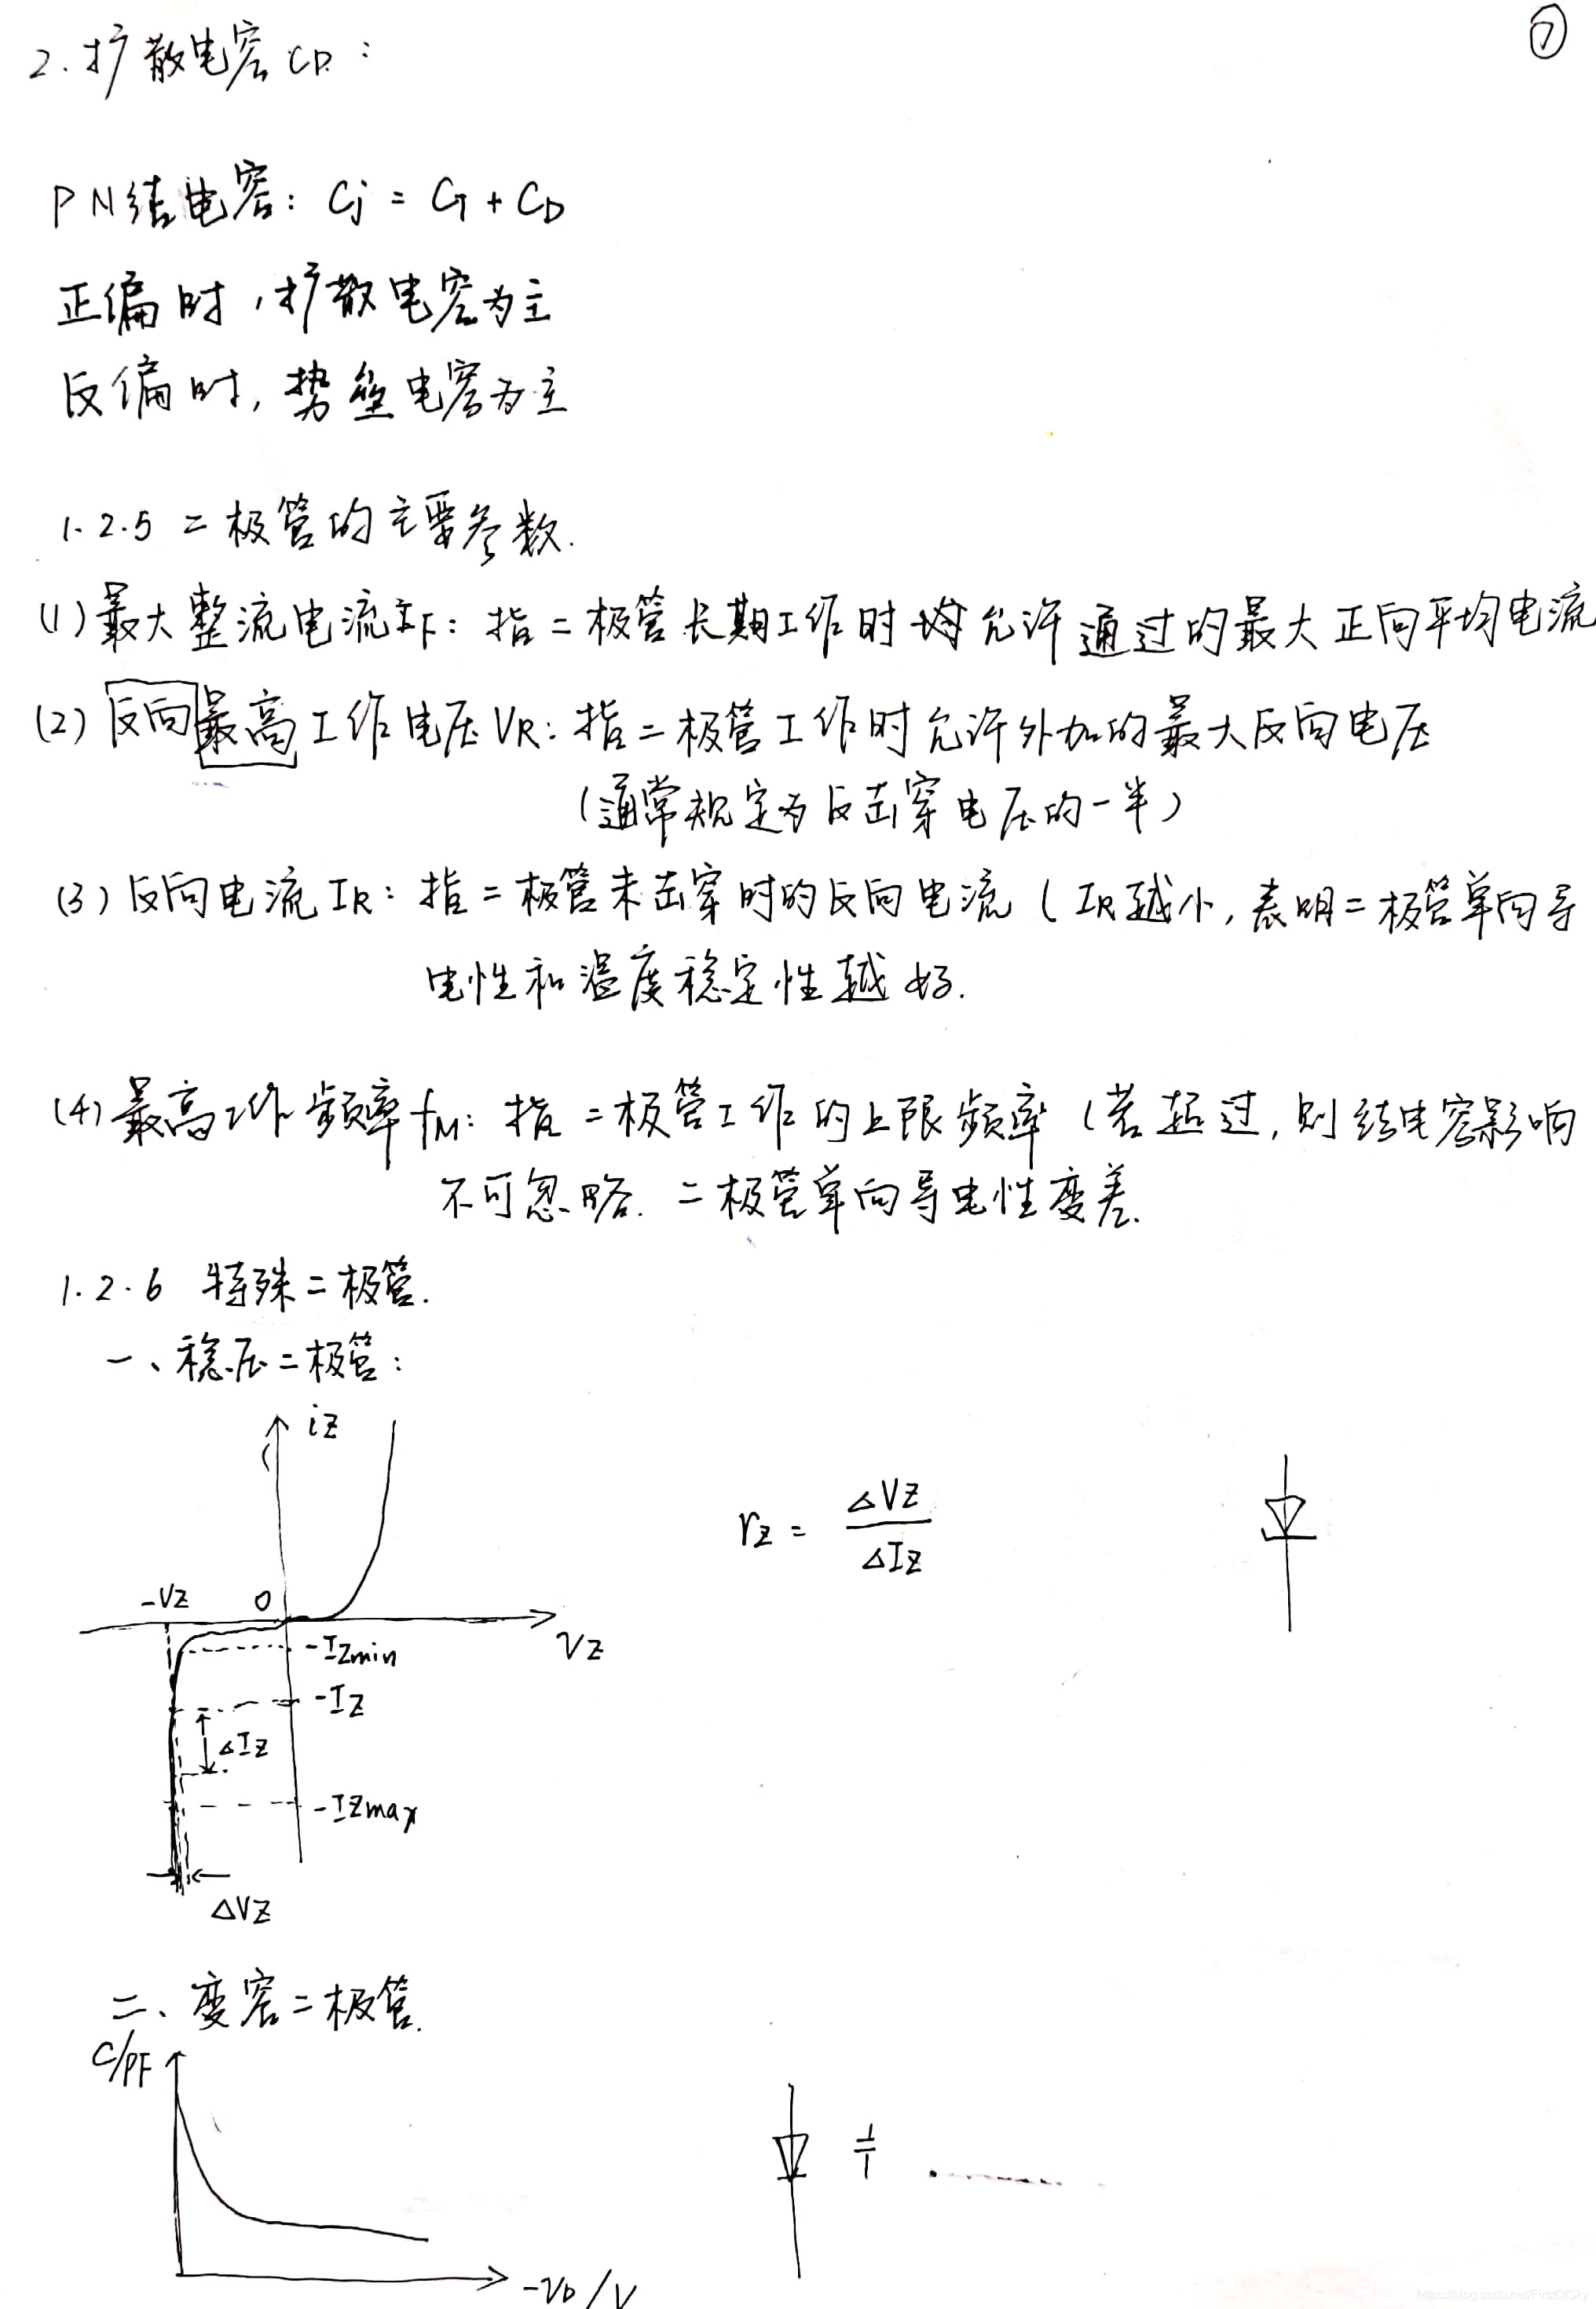 ⑦
2.扩散电容CD:
PN结电容: Cj = CT + CD
正偏时,扩散电容为主
反偏时,势垒电容为主
1.2.5 二极管的主要参数.
(1)最大整流电流IF: 指二极管长期工作时 允许通过的最大正向平均电流
(2)反向最高工作电压VR: 指二极管工作时允许外加的最大反向电压
(通常规定为反击穿电压的一半)
(3)反向电流IR: 指二极管未击穿时的反向电流(IR越小,表明二极管单向导
电性和温度稳定性越好.
(4)最高工作频率fM: 指二极管工作的上限频率(若超过,则结电容影响
不可忽略.二极管单向导电性变差.
1.2.6 特殊二极管.
一、稳压二极管:
iz
rz = ΔVz/ΔIz
-Vz
0
vz
-Izmin
-Iz
ΔIz
-Izmax
ΔVz
二、变容二极管.
C/PF
-vD/V
https://blog.csdn.net/FirstOfSky